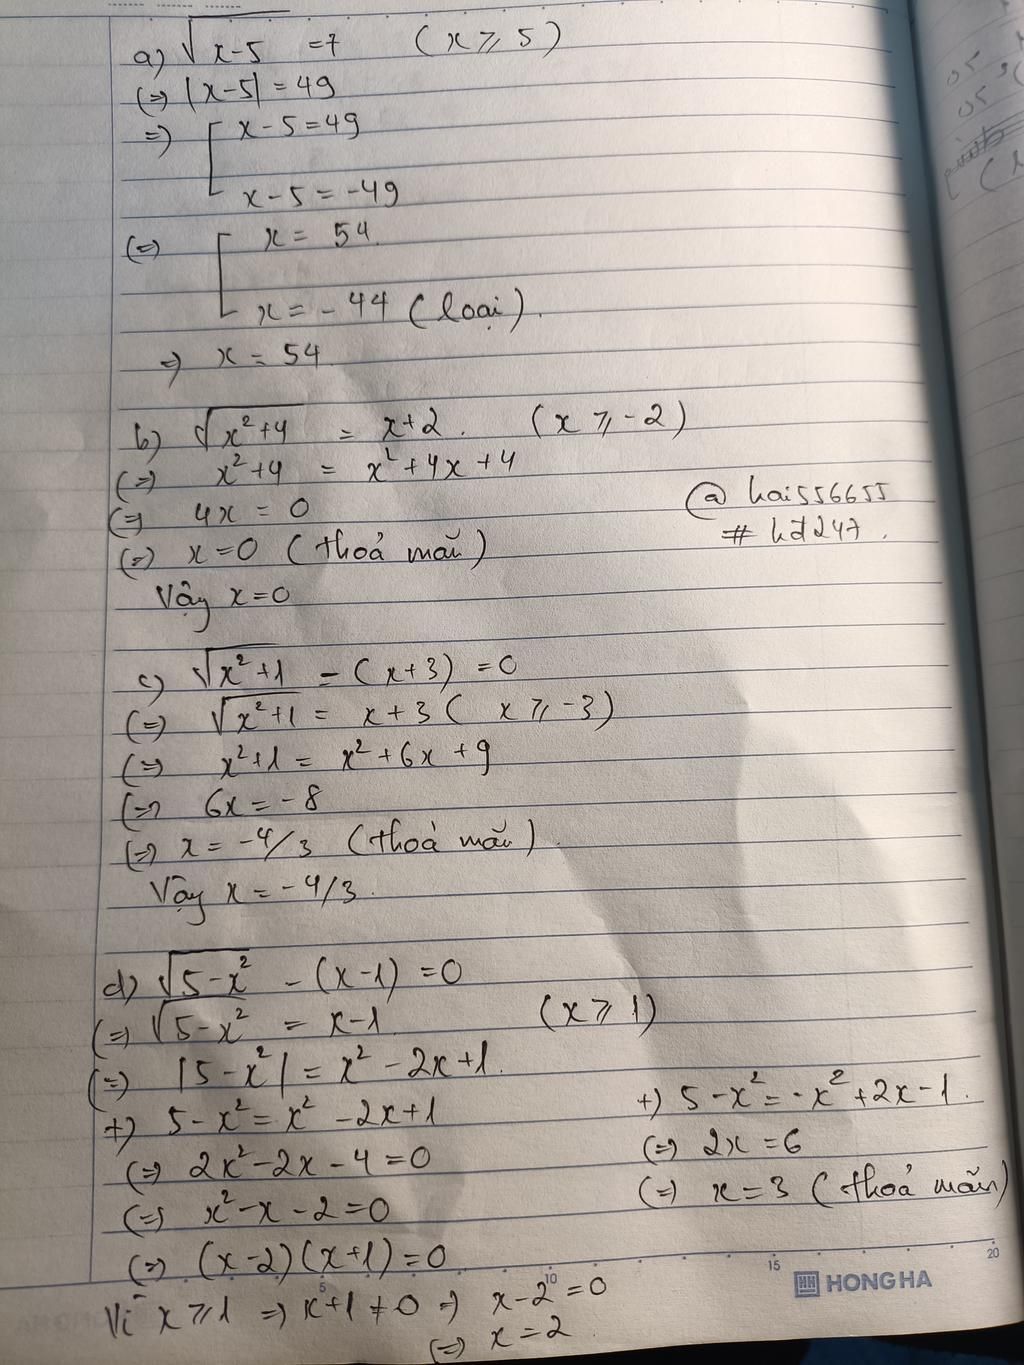 a) √x-5 =7 (x ≥ 5)
(=) |x-5| = 49
=) [ x-5=49
x-5=-49
(=) [ x = 54.
x = -44 (loại).
=) x = 54
b) √x²+4 = x+2. (x ≥ -2)
(=) x²+4 = x²+4x+4
(=) 4x = 0
(=) x=0 (thoả mãn)
Vậy x=0
@hai556655
# hd247.
c) √x²+1 - (x+3) =0
(=) √x²+1 = x+3 ( x ≥ -3)
(=) x²+1 = x²+6x+9
(=) 6x = -8
(=) x = -4/3 (thoả mãn).
Vậy x = -4/3.
d) √5-x² - (x-1) =0
(=) √5-x² = x-1 (x ≥ 1)
(=) |5-x²| = x² - 2x+1.
+) 5-x² = x² -2x+1
(=) 2x²-2x-4=0
(=) x²-x-2=0
(=) (x-2)(x+1)=0
Vì x ≥ 1 =) x+1 ≠ 0 =) x-2=0
(=) x=2
+) 5-x² = -x²+2x-1.
(=) 2x = 6
(=) x=3 (thoả mãn)
5 10 15 20
HH HONG HA